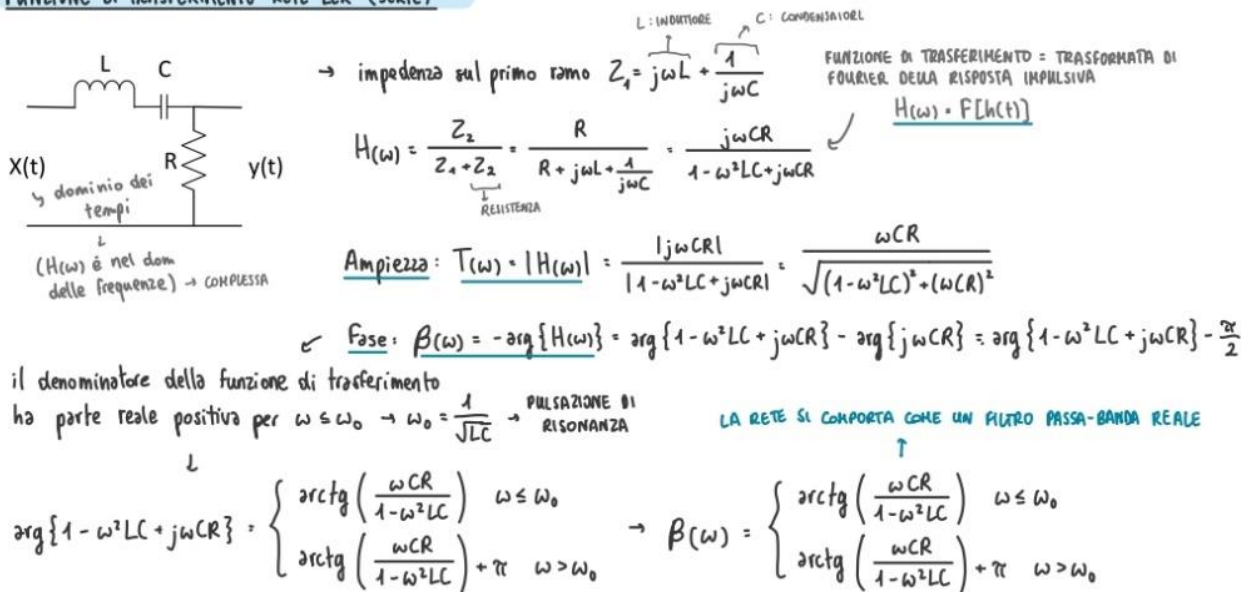 FUNZIONE DI TRASFERIMENTO RETE LCR (SERIE)
L: INDUTTORE
C: CONDENSATORE
→ impedenza sul primo ramo Z₁ = jωL + 1/jωC
FUNZIONE DI TRASFERIMENTO = TRASFORMATA DI
FOURIER DELLA RISPOSTA IMPULSIVA
H(ω) = F[h(t)]
L
C
R
X(t)
y(t)
↳ dominio dei
tempi
(H(ω) è nel dom
delle frequenze) → COMPLESSA
H(ω) = Z₂/(Z₁+Z₂) = R/(R + jωL + 1/jωC) = jωCR/(1 - ω²LC + jωCR)
RESISTENZA
Ampiezza: T(ω) = |H(ω)| = |jωCR|/|1 - ω²LC + jωCR| = ωCR/√((1 - ω²LC)² + (ωCR)²)
Fase: β(ω) = -arg{H(ω)} = arg{1 - ω²LC + jωCR} - arg{jωCR} = arg{1 - ω²LC + jωCR} - π/2
il denominatore della funzione di trasferimento
ha parte reale positiva per ω ≤ ω₀ → ω₀ = 1/√LC → PULSAZIONE DI RISONANZA
LA RETE SI COMPORTA COME UN FILTRO PASSA-BANDA REALE
arg{1 - ω²LC + jωCR} = { arctg(ωCR/(1 - ω²LC)) ω ≤ ω₀
arctg(ωCR/(1 - ω²LC)) + π ω > ω₀
→ β(ω) = { arctg(ωCR/(1 - ω²LC)) ω ≤ ω₀
arctg(ωCR/(1 - ω²LC)) + π ω > ω₀